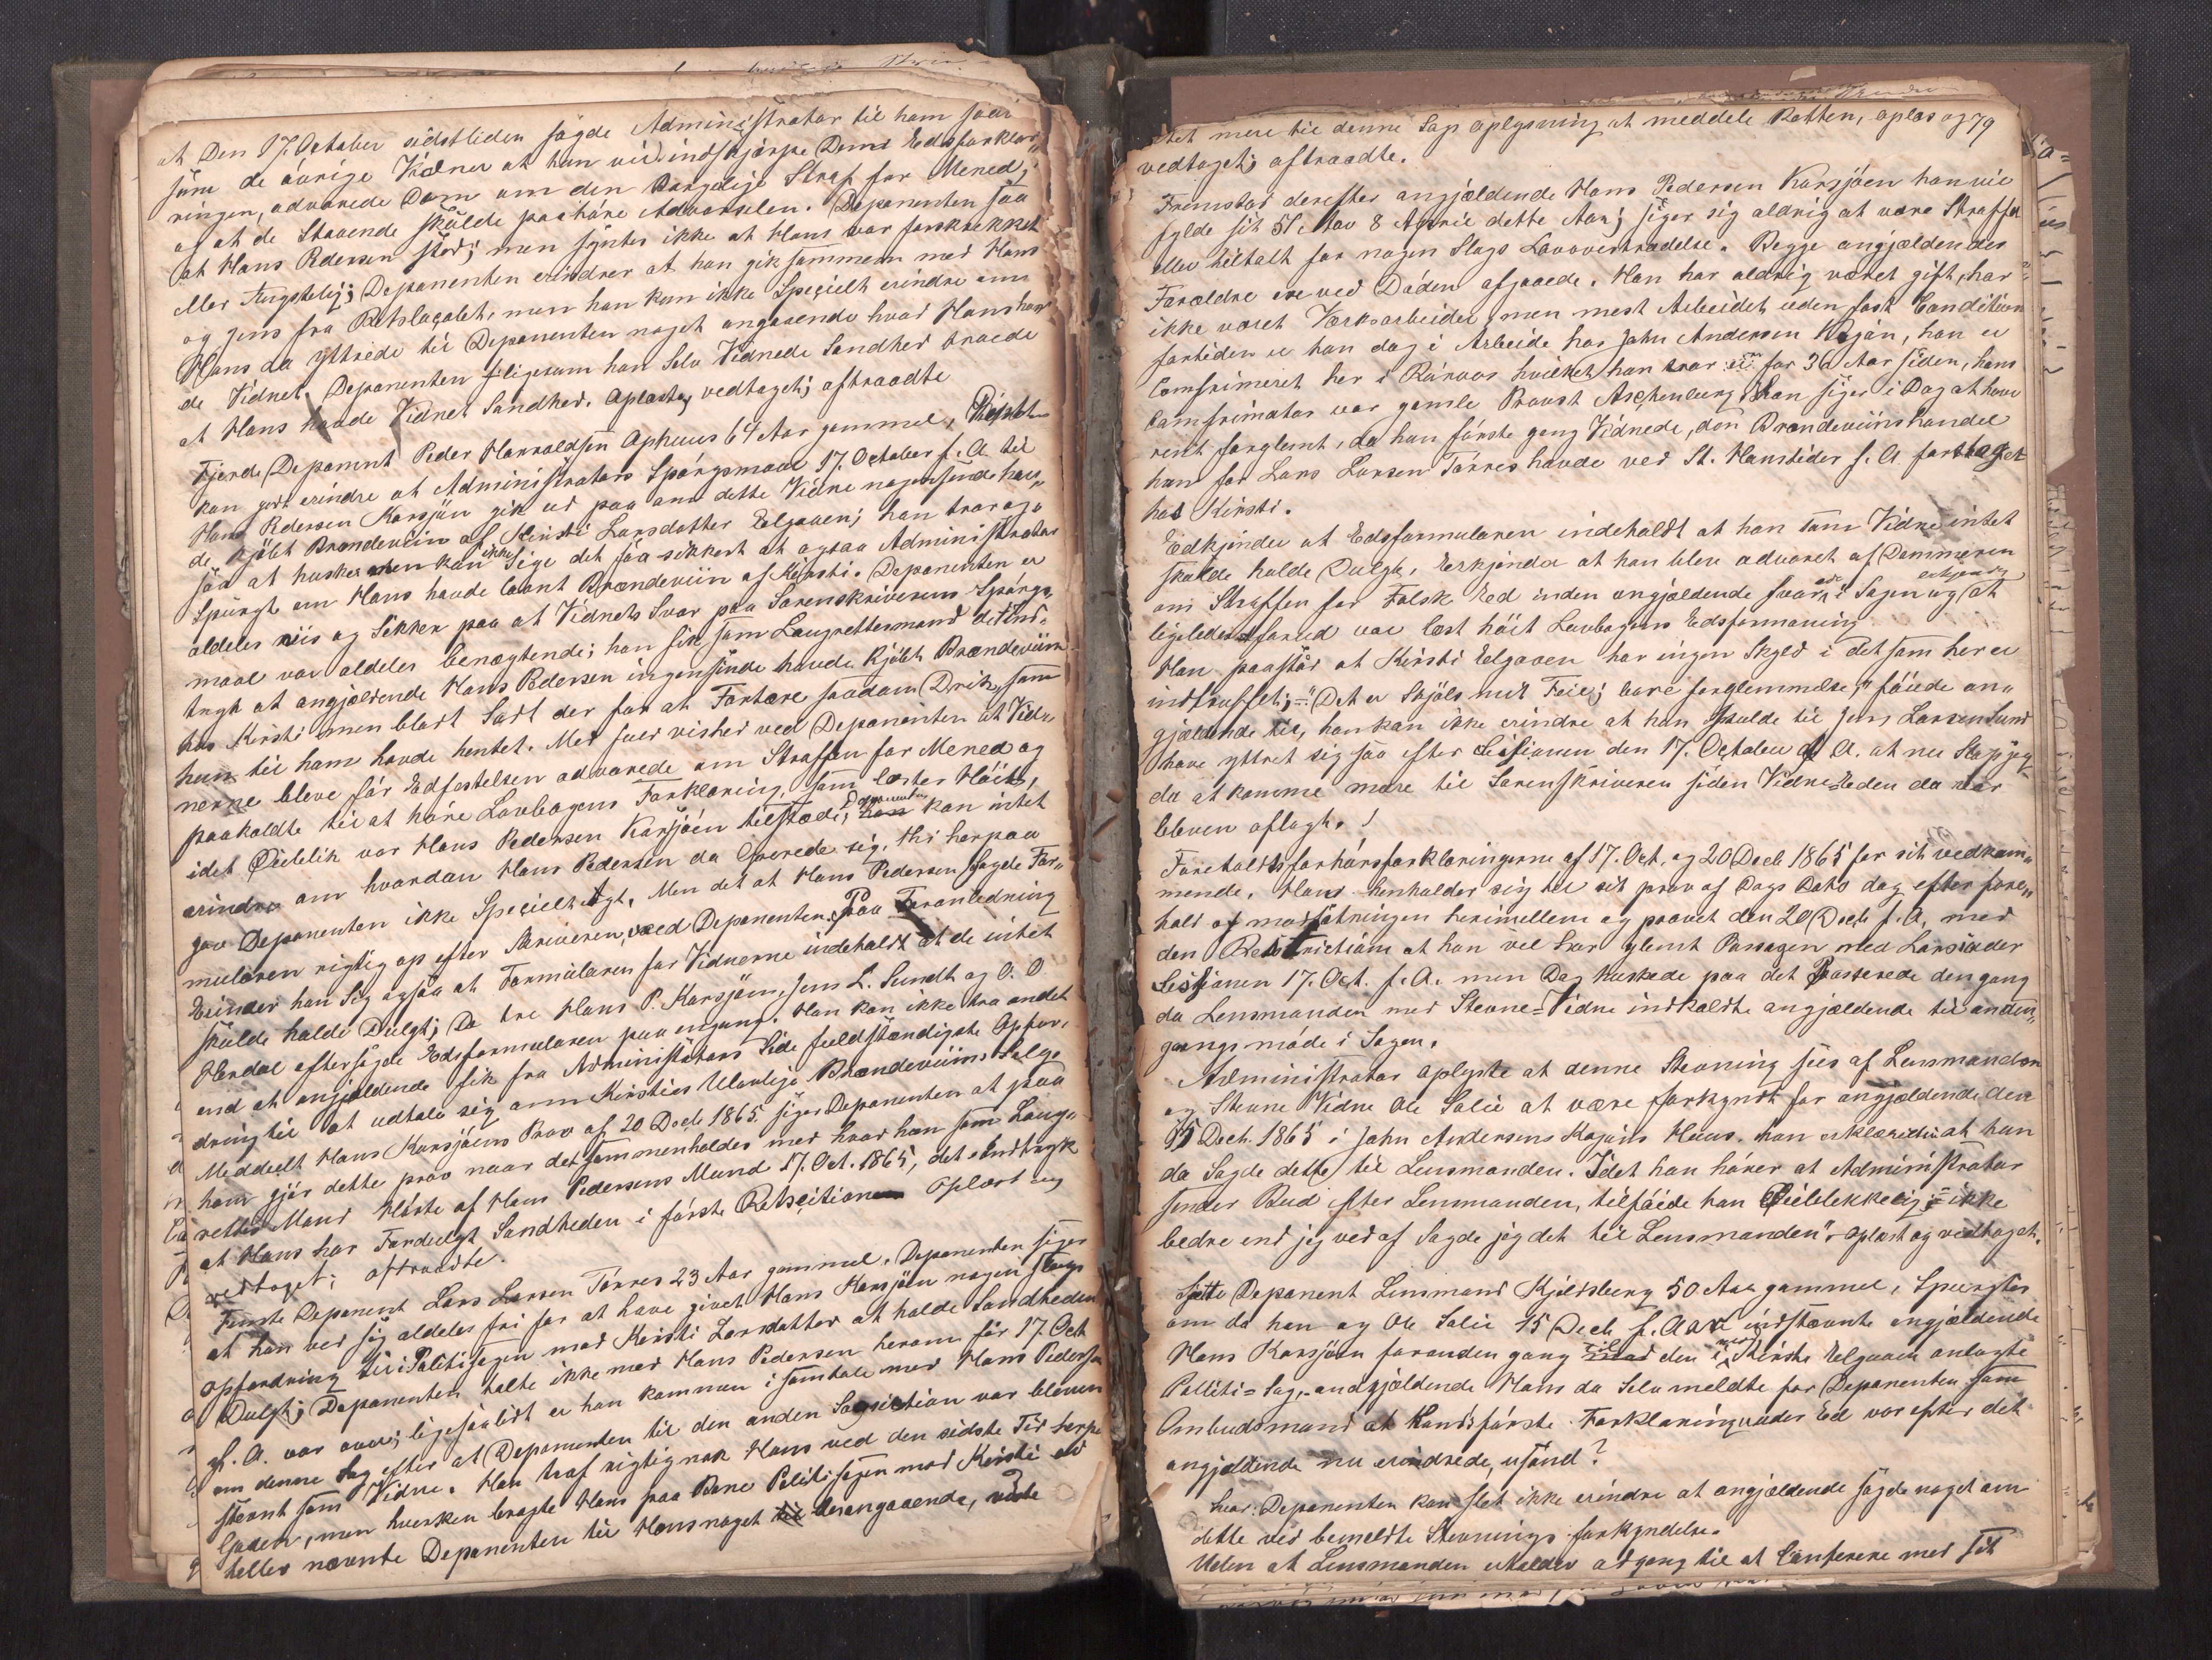 at Den 17. October sidstliden sagde Administrator til ham saavel
som de øvrige Vidner at han vil indskjærpe Dem Edsforklar„
ringen, advarede Dem om den Borgelige Straf for Meened;
og at de Staaende skulde paahøre Advarselen. Deponenten saa
at Hans Pedersen stod; men syntes ikke at Hans var forskrekket
eller Ængstelig; Deponenten erindrer at han gik sammen med Hans
og Jens fra Retslocalet, men han kan ikke Specielt erindre om
Hans da yttrede til Deponenten noget angaaende hvad Hans hav„
de Vidnet. Deponenten ligesom han Selv Vidnede Sandhed troede
at Hans havde Vidnet Sandhed. Oplæst og vedtaget; aftraadte
Fjerde Deponent Peder Harraldsen Ophuus 64 Aar gammel,
kan godt erindre at Administrators Spørgsmaal 17. October f. A. til
Hans Pedersen Korsjøen gik ud paa om dette Vidne nogensinde hav„
de kjøbt Brændeviin af Kirsti Larsdatter Eelgaaen; han tror og„
saa at huske men kan ikke Sige det saa sikkert at ogsaa Administrator
Spurgte om Hans havde laant Brændeviin af Kirsti. Deponenten er
aldeles viis og Sikker paa at Vidnets Svar paa Sorenskriverens Spørgs„
maal var aldeles benægtende; han fik som Laugrettesmand det Ind„
tryk at angjældende Hans Pedersen ingensinde havde kjøbt Brændeviin
hos Kirsti men blott Sadt der for at Fortære saadan Drik, som
hun til ham havde hentet. Med fuld vished ved Deponenten at Vid„
nerne bleve før Edfæstelsen advarede om Straffen for Meened og
paakaldte til at høre Lovbogens Forklaring, som læstes Høit,
idet Øieblik var Hans Pedersen Korsjøen tilstæde; Deponenten kan intet
erindre om hvordan Hans Pedersen da Geberdede sig, thi herpaa
gav Deponenten ikke Specielt Agt. Men det at Hans Pedersen sagde For„
mularen rigtig op efter Skriveren, ved Deponenten. Paa Foranledning
Erindrer han Sig ogsaa at Formularen for Vidnerne indeholdt at de intet
skulde holde Dulgt; De tre Hans P. Korsjøen, Jens L. Sundt og O. O.
Hendal eftersagde Edsformularen paa engang. Han kan ikke tro andet
end at angjældende fik fra Administrators Side fuldstændigste Opfor„
dring til at udtale sig om Kirsties Ulovlige Brændeviins Salg.
Meddeelt Hans Korsjøens Prov af 20 Decbr 1865 siger Deponenten at paa
ham gjør dette prov naar det sammenholdes med hvad han som Laug„
rettes Mand Hørte af Hans Pedersens Mund 17. Oct. 1865, det Indtryk
at Hans har Fordulgt Sandheden i første Retssition oplæst og
vedtaget; aftraadte.
Femte Deponent Lars Larsen Tørres 23 Aar gammel. Deponenten siger
at han ved sig aldeles fri for at have givet Hans Korsjøen nogen slags
opfordring til i Politisagen mod Kirsti Larsdatter at holde Sandheden
Dulgt; Deponenten talte ikke med Hans Pedersen herom før 17. Oct
f. A. var over; ligesaalidt er han kommen i samtale med Hans Pedersen
om denne Sag efter at Deponenten til den anden Session var bleven
stevnt som Vidne. Han traf rigtignok Hans ved den sidste Tid herpaa
Gaden, men hverken bragte Hans paa Bane Politisagen mod Kirsti ei
heller nævnte Deponenten til Hans noget desangaaende, vidste

79
intet mere til denne Sags oplysning at meddele Retten, oplæs og
vedtaget; aftraadte.
Fremstod derefter angjældende Hans Pedersen Korsjøen han vil
fylde sit 51. Aar 8 April dette Aar; siger sig aldrig at være Straffet
eller tiltalt for nogen Slags Lovovertrædelse. Begge angjældendes
Forældre ere ved Døden afgaaede. Han har aldrig været gift, har
ikke været Værksarbeider, men mest Arbeidet uden fast Condition
fortiden er han dog i Arbeide hos John Andersen Kojan, han er
Comfirmeret her i Røraas hvilket han tror er for 36 Aar siden, hans
Comfirmator var gamle Provst Aschenberg. Han siger i Dag at have
rent forglemt, da han første gang Vidnede, den Brændeviinshandel
han for Lars Larsen Tørres havde ved St. Hanstider f. A. fortaget
hos Kirsti.
Erkjender at Edsformularen indeholdt at han som Vidne intet
skulde holde Dulgt, Erkjender at han blev advaret af Dommeren
om Straffen for Falsk Eed inden angjældende svarede i Sagen og erkjender at
ligeledes forud var læst høit Lovbogens Edsformaning
Han paastår at Kirsti Eelgaaen har ingen Skyld i det som her er
indtruffet; = "Det er Skjøls mit Feil; bare forglemmelse," føiede an„
gjældende til, han kan ikke erindre at han skulde til Jens Larsen Sund
have yttret sig saa efter Sessionen den 17. October f. A. at nu Slap jeg
da at komme mere til Sorenskriveren siden Vidne-Eeden da var
bleven aflagt.
Foreholdt forhørsforklaringerne af 17. Oct. og 20 Decb 1865 for sit vedkom„
mende. Hans henholder sig til sit prov af Dags Dato dog efter fore„
hold af modsætningen herimellem og provet den 20 Decb. f. A. med
den Restriction at han vel har glemt Passagen med Lars under
Sessionen 17. Oct. f. A. men Dog huskede paa det Passerede den gang
da Lensmanden med Stevne=Vidne indkaldte angjældende til anden„
gangs møde i Sagen.
Administrator oplyste at denne Stevning sees af Lensmanden
og Stevne Vidne Ole Salie at være forkyndt for angjældende den
15 Decb. 1865 i John Andersens Kojans Huus. han erklærede at han
da Sagde dette til Lensmanden. Idet han hører at Administrator
sender Bud efter Lensmanden, tilføiede han Øieblekkelig; = ikke
bedre end jeg ved af Sagde jeg det til Lensmanden". oplæst og vedtaget.
Sjette Deponent Lensmand Kjeldsberg 50 Aar gammel, Spurgtes
om da han og Ole Salie 15 Decb. f. Aar indstævnte angjældende
Hans Korsjøen foranden gang til den mod Kirsti Elgaaen anlagte
Politi=Sag, angjældende Hans da Selv meldte for Deponenten som
Ombudsmand at Hands første Forklaring under Ed var efter det
angjældende nu erindrede, usand?
Svar: Deponenten kan slet ikke erindre at angjældende sagde noget om
dette ved bemeldte Stevnings forkyndelse.
Uden at Lensmanden erholder adgang til at Conferere med sit